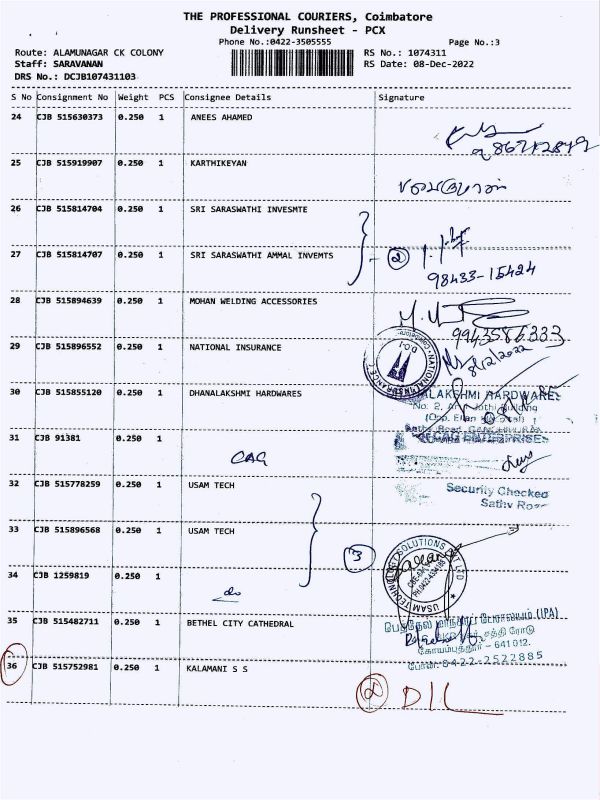 THE PROFESSIONAL COURIERS, Coimbatore
Delivery Runsheet - PCX
Phone No.:0422-3505555 Page No.:3
Route: ALAMUNAGAR CK COLONY RS No.: 1074311
Staff: SARAVANAN RS Date: 08-Dec-2022
DRS No.: DCJB107431103
S No Consignment No Weight PCS Consignee Details Signature
24 CJB 515630373 0.250 1 ANEES AHAMED
25 CJB 515919907 0.250 1 KARTHIKEYAN
26 CJB 515814704 0.250 1 SRI SARASWATHI INVESMTE
27 CJB 515814707 0.250 1 SRI SARASWATHI AMMAL INVEMTS
2
98433-15424
28 CJB 515894639 0.250 1 MOHAN WELDING ACCESSORIES
9943586333
29 CJB 515896552 0.250 1 NATIONAL INSURANCE
8/12/2022
30 CJB 515855120 0.250 1 DHANALAKSHMI HARDWARES
ALAKSHMI HARDWARES
31 CJB 91381 0.250 1
CAG
CAG ENTERPRISES
32 CJB 515778259 0.250 1 USAM TECH
Security Checked
33 CJB 515896568 0.250 1 USAM TECH
3
USAM TECHNOLOGY SOLUTIONS PVT LTD
34 CJB 1259819 0.250 1
do
35 CJB 515482711 0.250 1 BETHEL CITY CATHEDRAL
சத்தி ரோடு
கோயம்புத்தூர் - 641 012.
போன்: 0422-2522885
36 CJB 515752981 0.250 1 KALAMANI S S
2 D/L